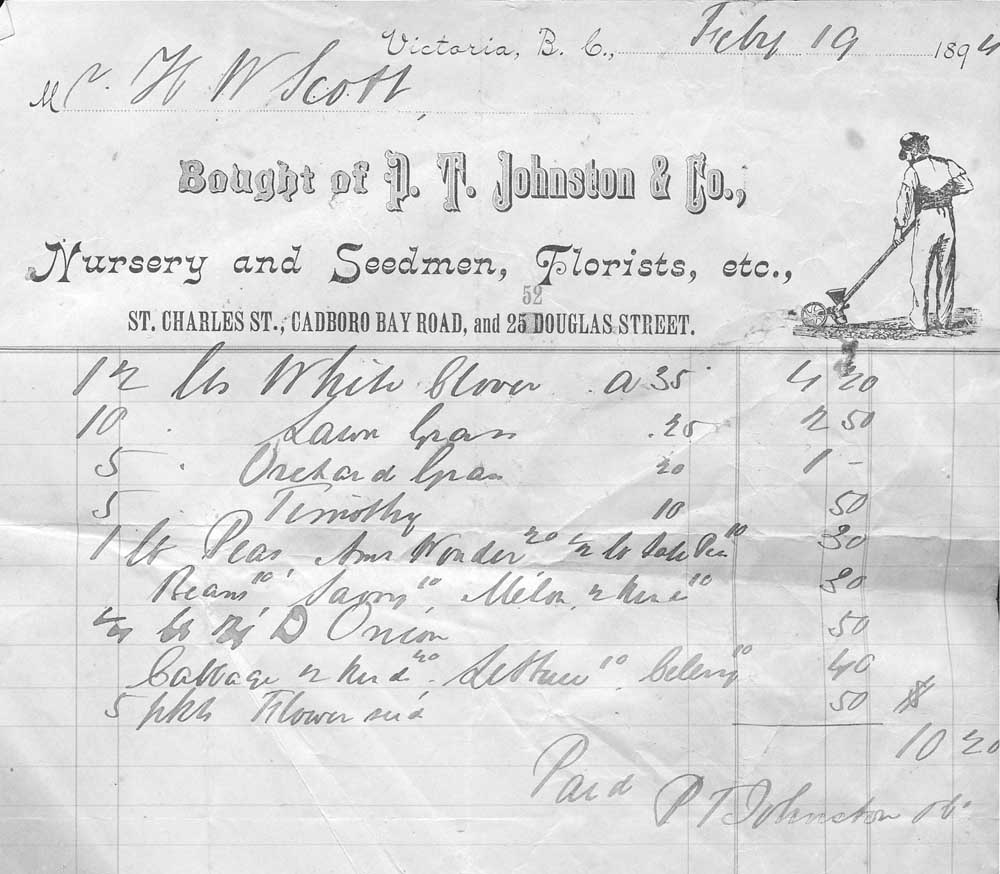 Victoria, B. C., Feby 19 1894
Mr. H W Scott
Bought of P. T. Johnston & Co.,
Nursery and Seedmen, Florists, etc.,
52
ST. CHARLES ST., CADBORO BAY ROAD, and 25 DOUGLAS STREET.
12 lbs White Clover a 35 4 20
10 " Lawn Grass .25 2 50
5 " Orchard Gras 20 1 -
5 Timothy 10 50
1 lb Peas Amr Wonder 20 ½ lb Peas 10 30
Beans 10 Savory 10 Melon 2 kind 10 30
lb D Onion 50
Cabbage 2 kind 20 Lettuce 10 Celery 10 40
5 pkts Flower seed 50 $
10 20
Paid P T Johnston